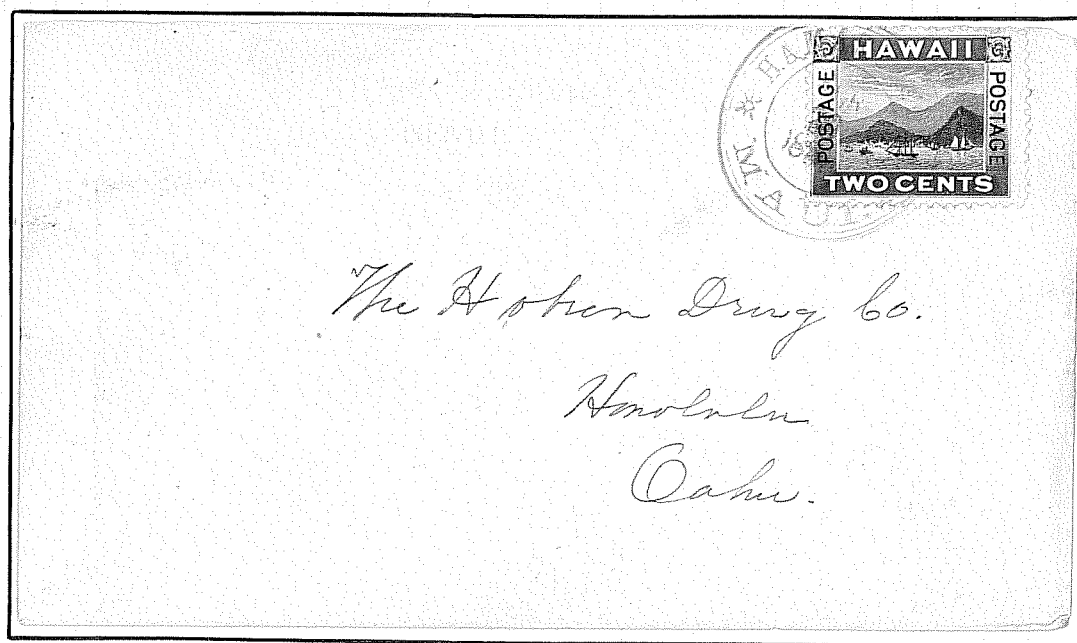 HAWAII
POSTAGE
POSTAGE
TWO CENTS
MAUI
The Hobron Drug Co.
Honolulu
Oahu.